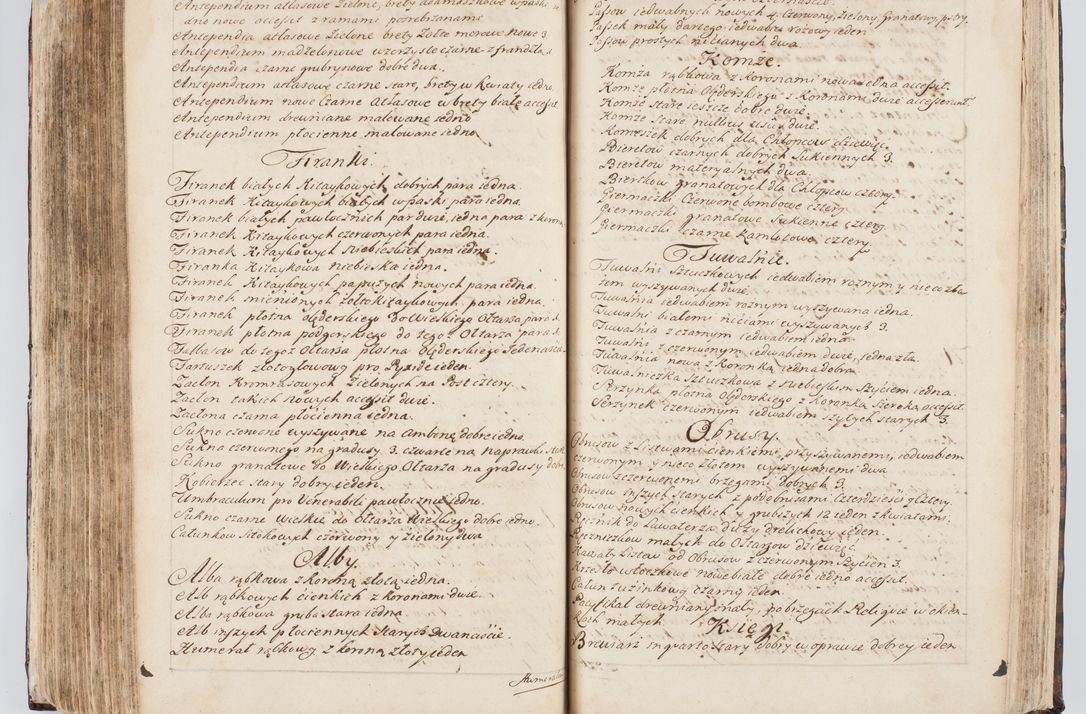 Antependium atłasowe Zielone, brety adamaszkowe w paski
dno nowe accessit z ramami porebrzanemi
Antependia atłasowe Zielone brety Zołte morowe nowe 3
Antependium madzelonowe wzorzyste czarne z frandzlą
Antependia czarne grubrynowe dobre dwa.
Antependium atłasowe czarne stare, brety w Kwiaty iedno
Antependium nowe Czarne Atłasowe w brety białe accessit
Antependium drewniane malowane iedno
Antependium płocienne malowane iedno
Firanki.
Firanek białych Kitaykowych dobrych para iedna.
Firanek Kitaykowych białych w paski para iedna.
Firanek białych pawłocznich par dwie, iedna para z koroną
Firanek Kitaykowych czerwonych para iedna.
Firanek Kitaykowych Niebieskich para iedna.
Firanka Kitaykowa niebieska iedna.
Firanek Kitaykowych papużych nowych para iedna.
Firanek mienionych Zołto Kitaykowych para iedna.
Firanek płotna olęderskiego do Wielkiego Ołtarza para
Firanek płotna podgorskiego do tegoż Ołtarza para
Falbasow do tegoż Ołtarza płotna Olęderskiego Iedenaście
Fartuszek złotogłowowy pro Pyxide ieden.
Zasłon Kromrasowych Zielonych na Post cztery.
Zasłon takich nowych accessit dwie.
Zasłona czarna płocienna iedna.
Sukno czerwone wyszywane na Ambonę dobre iedno.
Sukna czerwonego na gradusy 3. czwarte na naprawki stare
Sukno granatowe do Wielkiego Ołtarza na gradusy dobre
Kobierzec stary dobry ieden.
Umbraculum pro Venerabili pawłoczne iedno.
Sukno czarne wielkie do Ołtarza Wielkiego dobre iedno.
Całunkow Sitokowych czerwony y zielony dwa
Alby.
Alba rąbkowa z koroną złotą iedna.
Alb rąbkowych cienkich z koronami dwie.
Alba rąbkowa gruba stara iedna.
Alb inszych płociennych starych Dwanaście.
Humerał rąbkowy z koroną złoty ieden
Humerałow
Passow iedwabnych nowych 4. Czerwony, Zielony, Granatowy, pstry
Passek mały dartego iedwabiu rozowy ieden
Passow prostych nicianych dwa.
Komże.
Komża rąbkowa z koronami nowa iedna accessit.
Komże płotna Olęderskiego z Koronami dwie accesserunt
Komże stare ieszcze dobre dwie.
Komże stare nullius usus dwie.
Komeszek dobrych dla Chłopcow dziewięć
Bieretow czarnych dobrych sukiennych 3.
Bieretow materyalnych dwa.
Biertkow granatowych dla Chłopcow cztery.
Giermaczki Czerwone bombowe cztery
Giermaczki granatowe Sukienne cztery
Giermaczki czarne Kamlotowe cztery
Tuwalnie.
Tuwalni Sztuczkowych iedwabiem roznym y nieco zło
tem wyszywanych dwie.
Tuwalnia iedwabiem roznym wyszywana iedna.
Tuwalni białemi niciami wyszywanych 3.
Tuwalnia z czarnym iedwabiem iedna
Tuwalni z czerwonym iedwabiem dwie, iedna zła.
Tuwalnia nowa z Koronką iedna dobra
Tuwalniczka Sztuczkowa z niebieskim szyciem iedna.
Serzynka płotna Olęderskiego z Koronką szeroką accessit.
Serzynek czerwonym iedwabiem szytych starych 3.
Obrusy.
Obrusow z Listwami cienkiemi przyszywanemi, iedwabiem
czerwonym y nieco złotem wyszywanemi dwa
Obrusow z czerwonemi brzegami dobrych 3.
Obrusow inszych starych z podobrusami Czterdzieści y cztery
Obrusow nowych cienkich y grubszych 12 ieden z kwiatami.
Ręcznik do Lawaterza duży drelichowy ieden.
Ręczniczkow małych do Ołtarzow dziewięć
Kawały Listew od Obrusow z czerwonym szyciem 3.
Krzesło włoczkowe nowe białe dobre iedno accessit.
Całun tuzinkowy czarny ieden.
Pacyfikał drewniany mały, po brzegach Reliquie w ekra
kach małych
Księgi
Brewiarz in quarto stary dobry w oprawie dobrey ieden